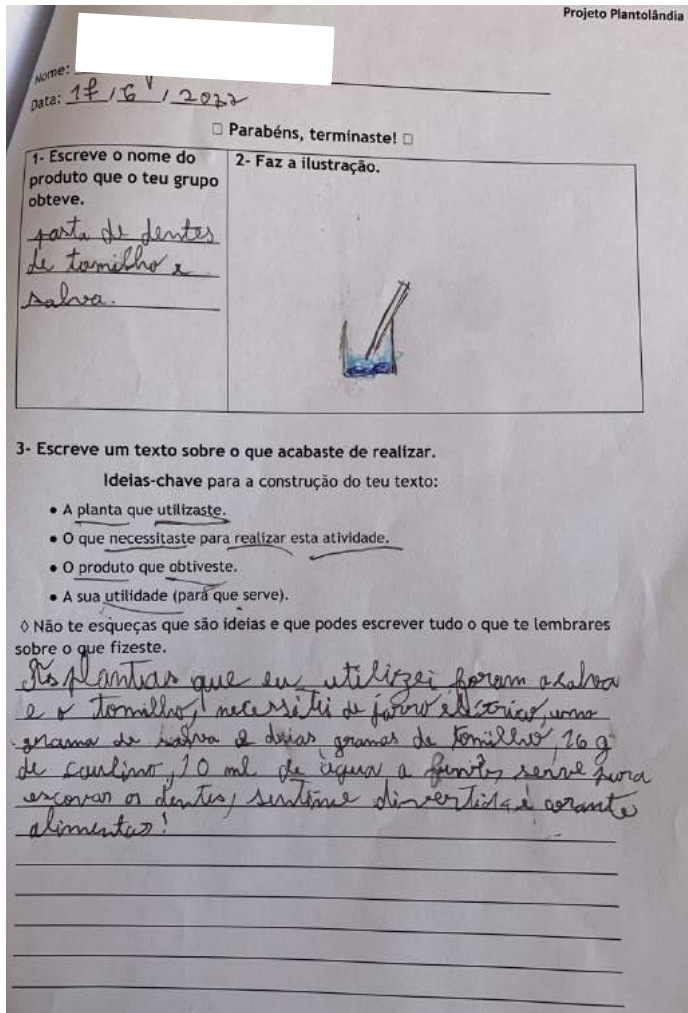 Projeto Plantolândia
Nome:
Data: 17/6/2022
□ Parabéns, terminaste! □
1- Escreve o nome do
produto que o teu grupo
obteve.
pasta de dentes
de tomilho e
salva.
2- Faz a ilustração.
3- Escreve um texto sobre o que acabaste de realizar.
Ideias-chave para a construção do teu texto:
• A planta que utilizaste.
• O que necessitaste para realizar esta atividade.
• O produto que obtiveste.
• A sua utilidade (para que serve).
◊ Não te esqueças que são ideias e que podes escrever tudo o que te lembrares
sobre o que fizeste.
As plantas que eu utilizei foram a salva
e o tomilho, necessitei de jarro elétrico, uma
grama de salva e duas gramas de tomilho, 16 g
de caulino, 10 ml de água a serve para
escovar os dentes, sentime divertida e corante
alimentar!